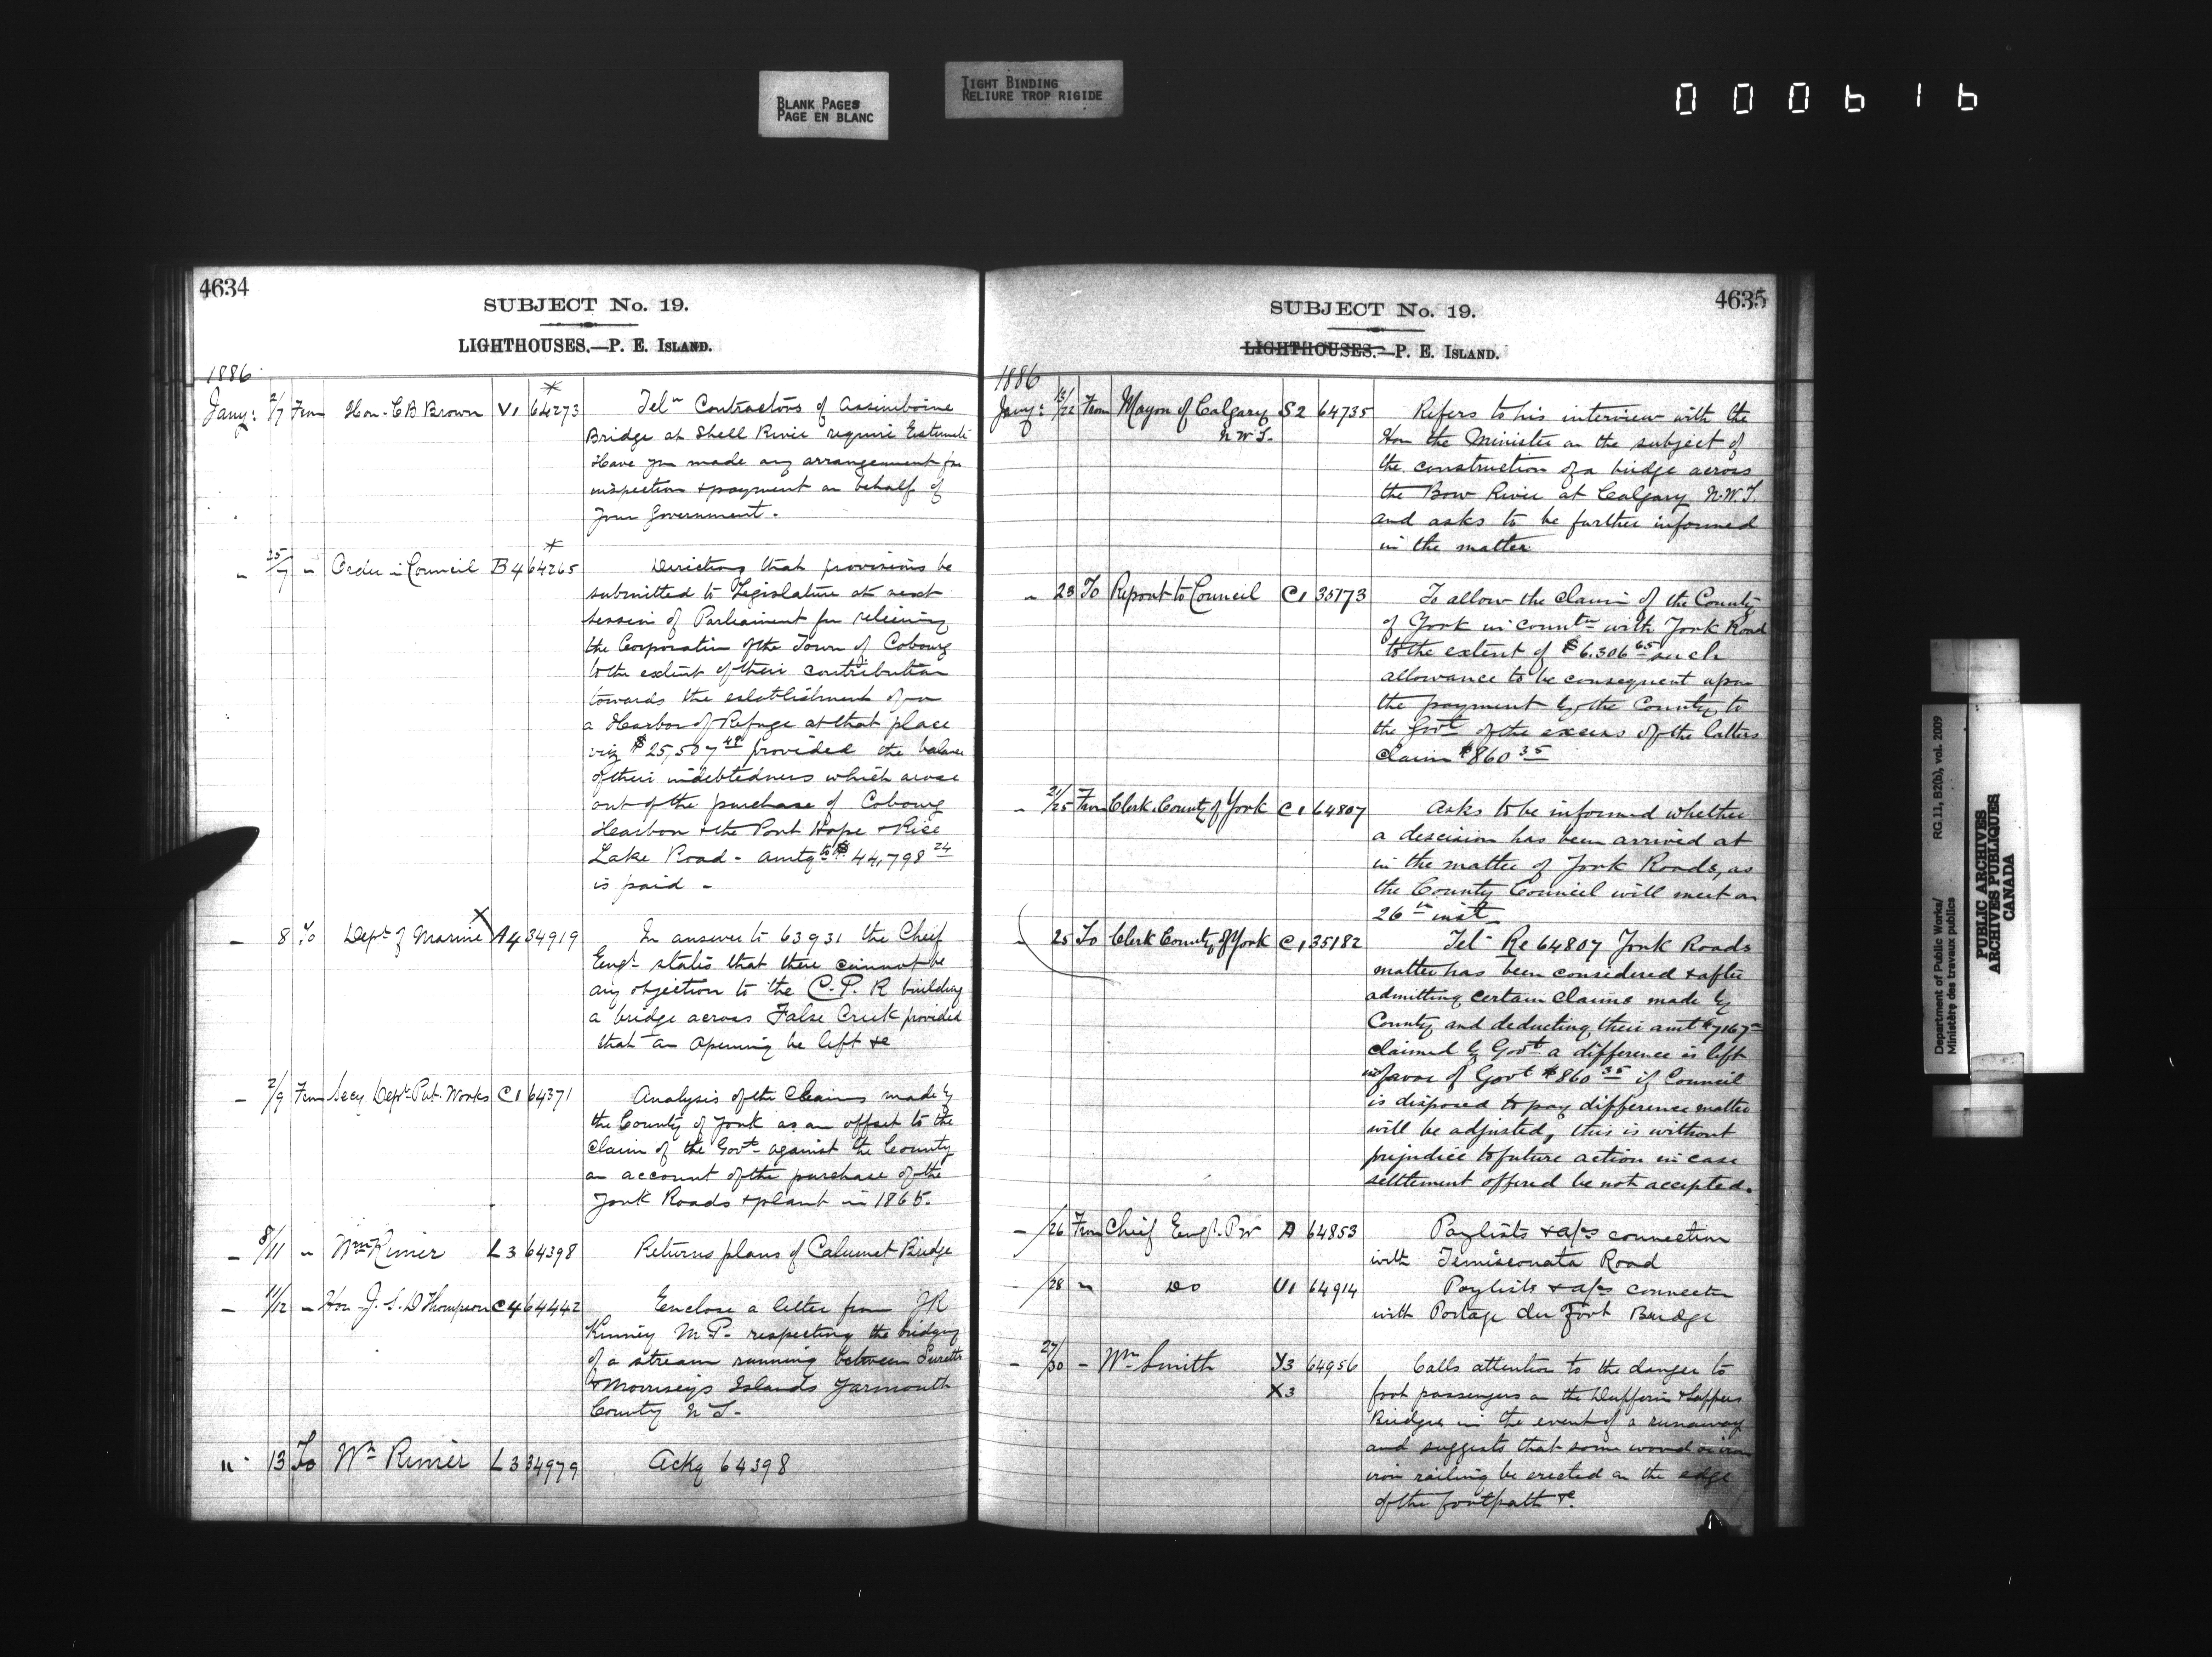 BLANK PAGES
PAGE EN BLANC
TIGHT BINDING
RELIURE TROP RIGIDE
000616
4634
SUBJECT No. 19.
LIGHTHOUSES.—P. E. ISLAND.
1886
Jany: 2/7 From Hon. C B Brown V1 64273 Telm Contractors of Assiniboine
Bridge at Shell River require Estimate
Have you made any arrangement for
inspection & payment on behalf of
your Government.
" 7 " Order in Council B4 64265 Directing that provisions be
submitted to Legislature at next
session of Parliament for relieving
the Corporation of the Town of Cobourg
to the extent of their contribution
towards the establishment of
a Harbor of Refuge at that place
viz $25,507 48 provided the balance
of their indebtedness which arose
out of the purchase of Cobourg
Harbor & the Port Hope & Rice
Lake Road - amtg to $44,798 24
is paid -
" 8 To Dept of Marine A4 34919 In answer to 63931 the Chief
Engr states that there cannot be
any objection to the C.P.R building
a bridge across False Creek provided
that an opening be left &c
" 2/9 From Secy Dept Pub. Works C1 64371 Analysis of the Claims made by
the County of York as an offset to the
claim of the Govt against the County
on account of the purchase of the
York Roads & plant in 1865.
" 8/11 " Wm Rimer L3 64398 Returns plans of Calumet Bridge
" 11/12 " Hon J. S. D Thompson C4 64442 Enclose a letter from JR
Kinney M.P. respecting the bridging
of a stream running between Suretts
& Morriseys Islands Yarmouth
County N S -
" 13 To Wm Rimer L3 34979 Ackg 64398
4635
SUBJECT No. 19.
LIGHTHOUSES.—P. E. ISLAND.
1886
Jany: /22 From Mayor of Calgary S2 64735 Refers to his interview with the
N.W.T. Hon the Minister on the subject of
the construction of a bridge across
the Bow River at Calgary N.W.T.
and asks to be further informed
in the matter
" 23 To Report to Council C1 35173 To allow the claim of the County
of York in conntn with York Road
to the extent of $6.306 65 such
allowance to be consequent upon
the payment by the County to
the Govt of the excess of the latters
claim $860 35
" 21/25 From Clerk County of York C1 64807 Asks to be informed whether
a descision has been arrived at
in the matter of York Roads, as
the County Council will meet on
26th inst
" 25 To Clerk County of York C1 35182 Tel- Re 64807 York Roads
matter has been considered & after
admitting certain claims made by
County and deducting their amt $7167
claimed by Govt a difference is left
in favor of Govt $860 35 if Council
is disposed to pay difference matter
will be adjusted, this is without
prejudice to future action in case
settlement offered be not accepted.
" /26 From Chief Engr. P W A 64853 Paylists & a/cs connection
with Temisconata Road
" /28 " Do V1 64914 Paylists & a/cs connection
with Portage du Fort Bridge
" 27/30 " Wm Smith Y3 64956 Calls attention to the danger to
X3 foot passengers on the Dufferin & Sappers
Bridges in the event of a runaway
and suggests that some wood or iron
iron railing be erected on the edge
of the footpath &c.
Department of Public Works/ RG 11, B2(b), vol. 2009
Ministère des travaux publics
PUBLIC ARCHIVES
ARCHIVES PUBLIQUES
CANADA